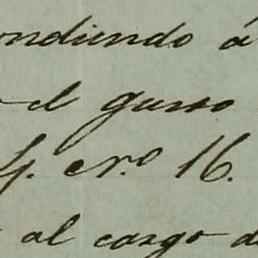 ondiendo á
el gusto
G. en.º 16.
al cargo d